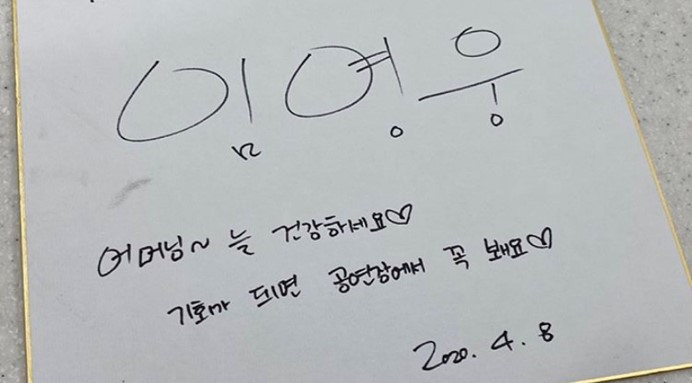 임영웅
어머님~ 늘 건강하세요♡
기회가 되면 공연장에서 꼭 봬요♡
2020. 4. 8